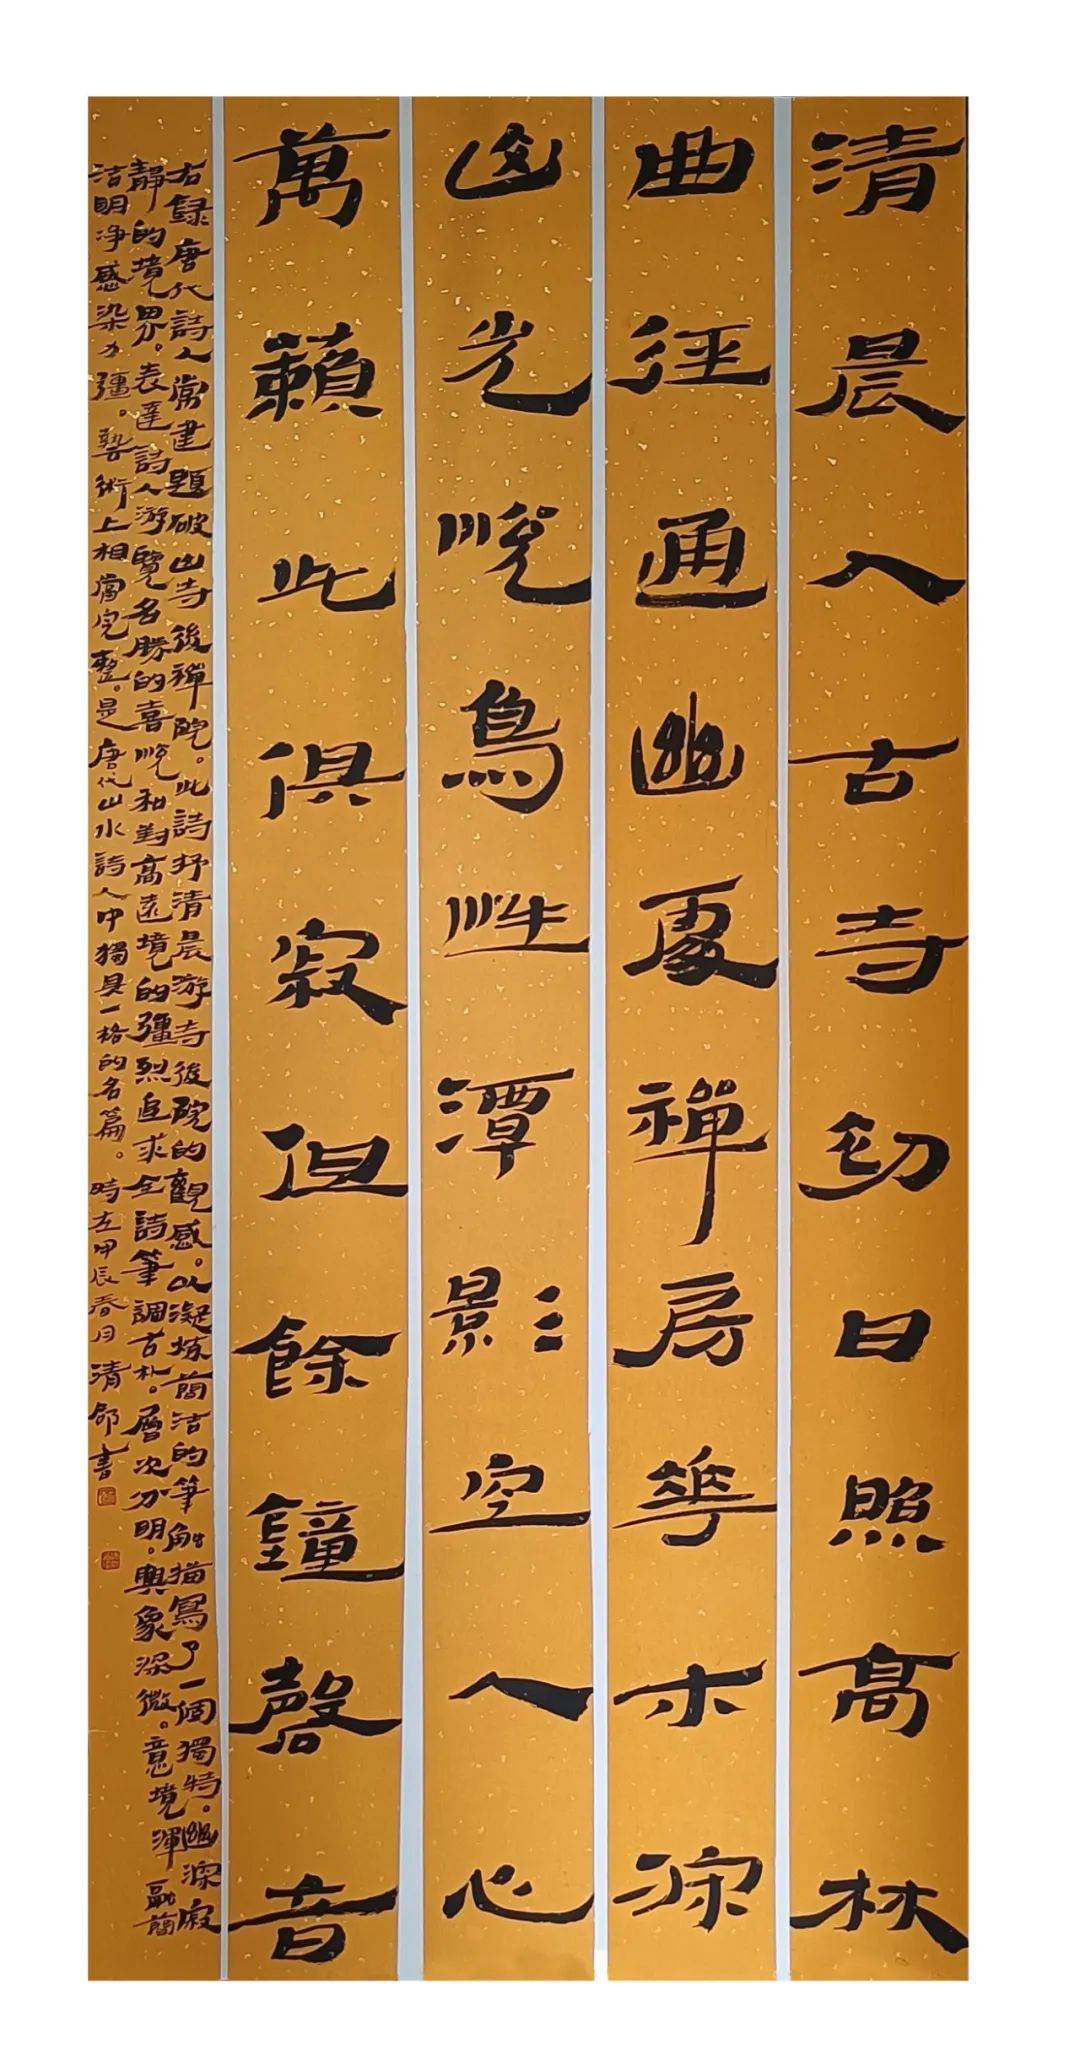 清晨入古寺初日照高林
曲徑通幽處禪房華木深
山光悅鳥性潭影空人心
萬籟此俱寂但餘鐘磬音
右録唐代詩人常建題破山寺後禪院。此詩抒清晨游寺後院的觀感。以凝炼簡洁的筆觸描寫了一個獨特。幽深寂
靜的境界。表達詩人游覽名勝的喜悅和對高遠境的彊烈追求全詩筆調古朴。層次分明。興象深微。意境渾融簡
洁明净感染力彊。藝術上相當完整。是唐代山水詩人中獨具一格的名篇。時在甲辰春月清書